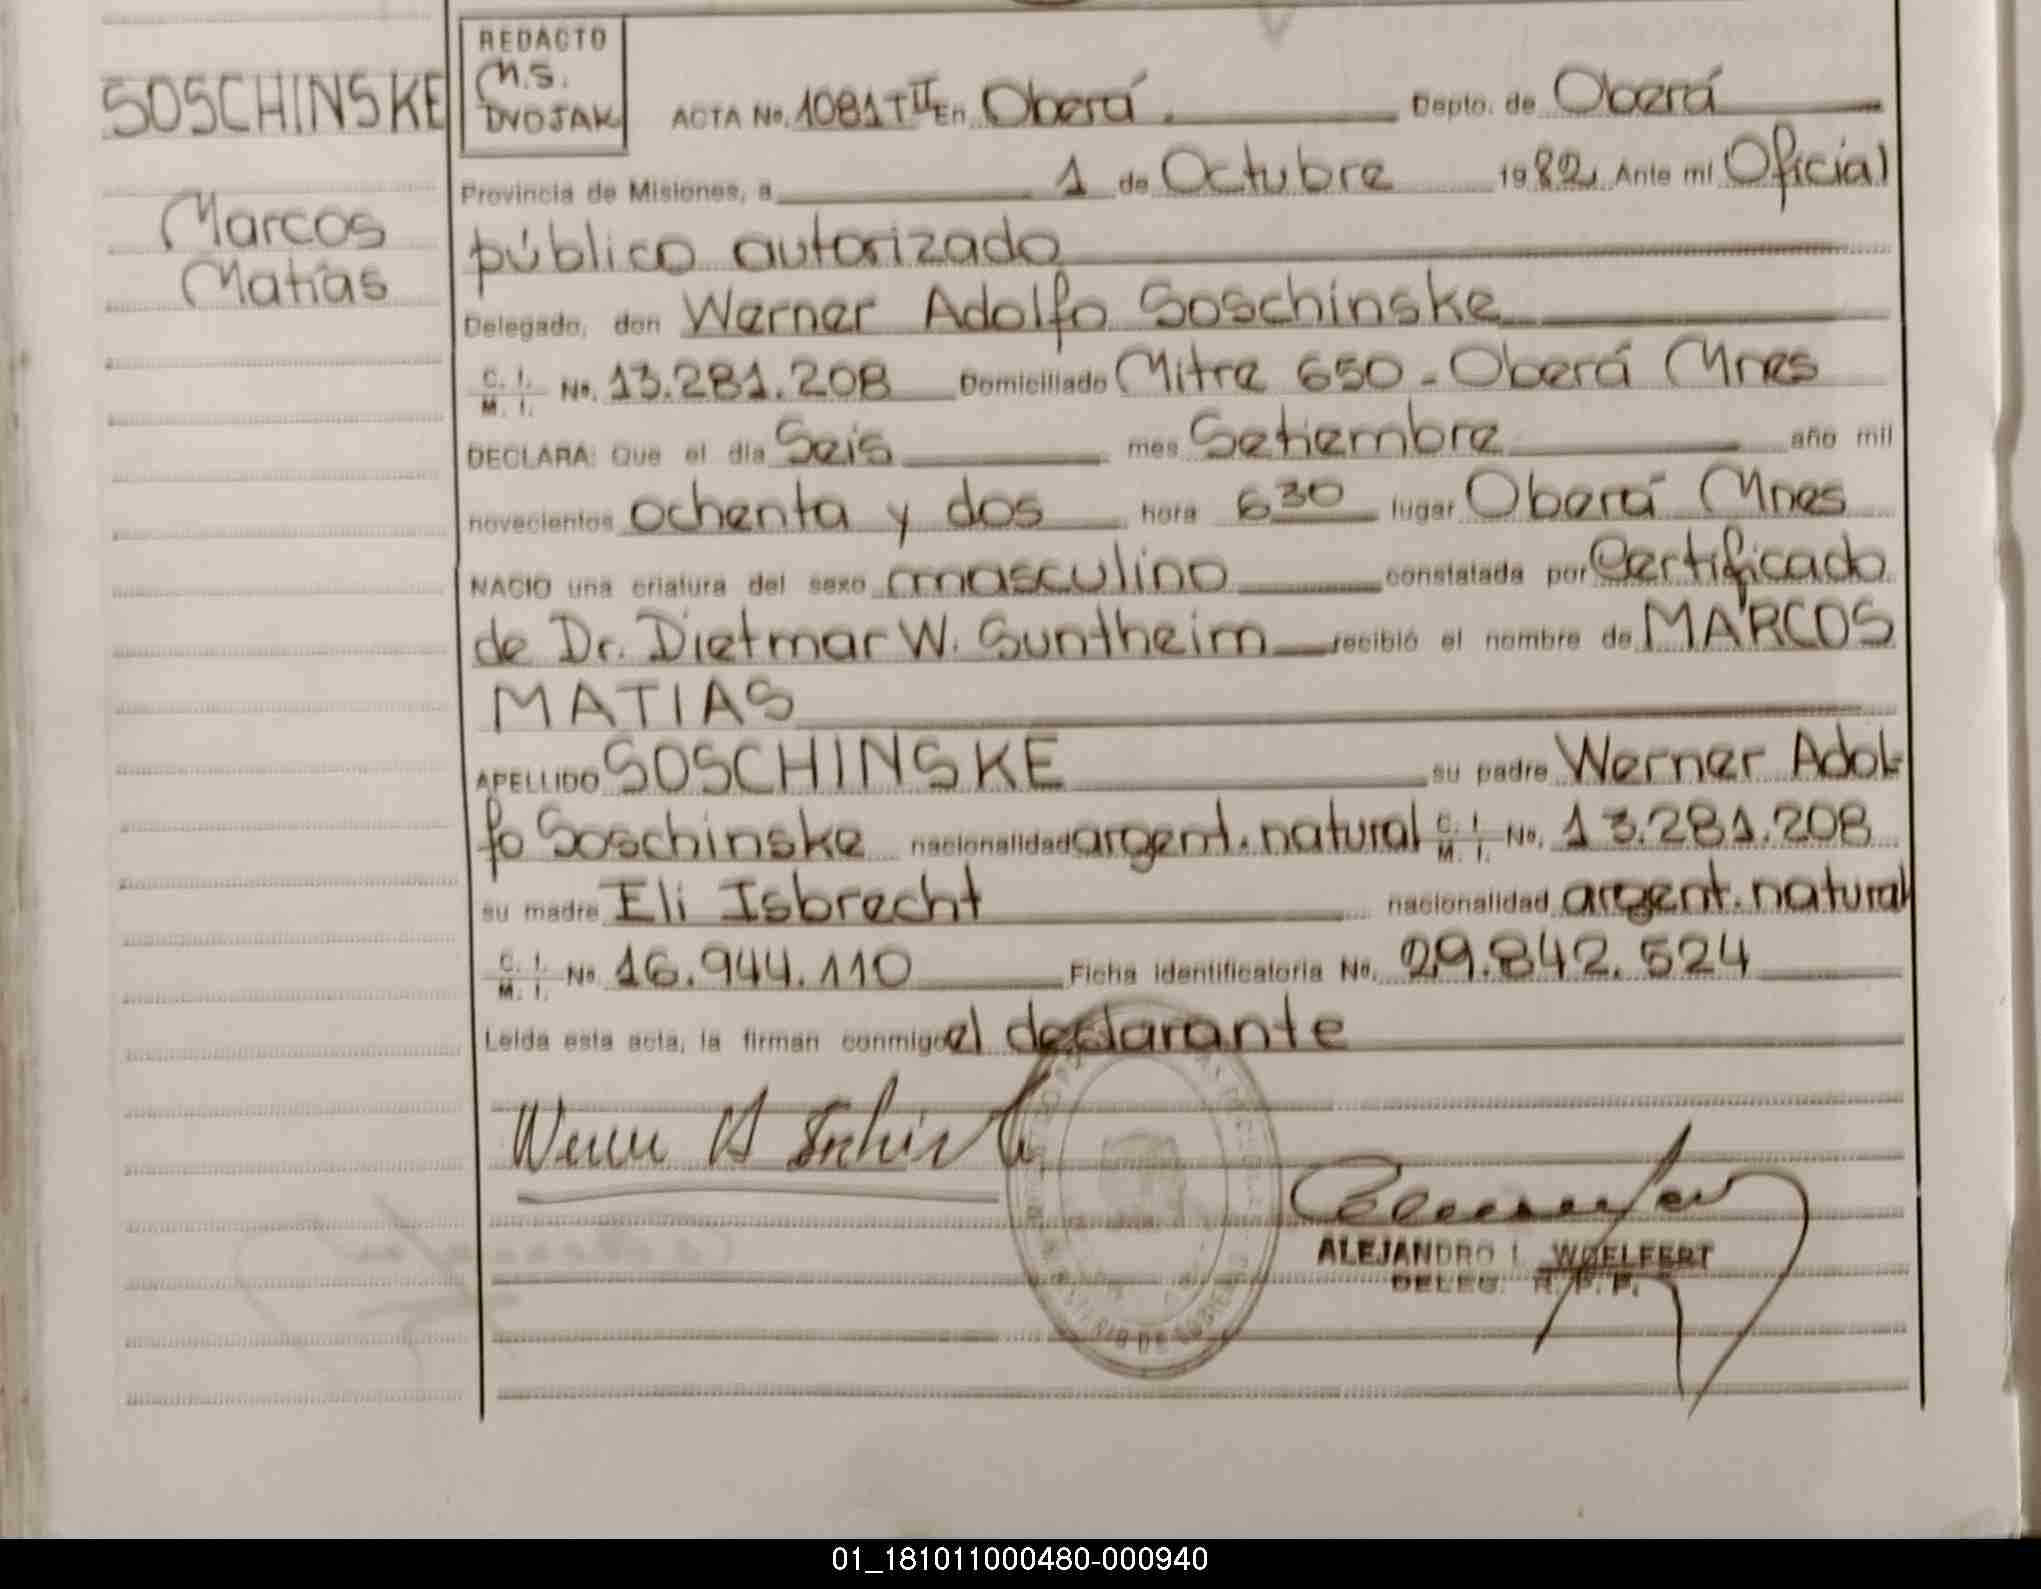 SOSCHINSKE
Marcos
Matías
REDACTO
M.S.
DVOJAK
ACTA No. 1081 T II En Oberá Depto. de Oberá
Provincia de Misiones, a 1 de Octubre 1982 Ante mi Oficial
público autorizado
Delegado, don Werner Adolfo Soschinske
C. I. M. I. No. 13.281.208 Domiciliado Mitre 650 - Oberá Mnes
DECLARA: Que el día Seis mes Setiembre año mil
novecientos ochenta y dos hora 6 30 lugar Oberá Mnes
NACIO una criatura del sexo masculino constatada por Certificado
de Dr. Dietmar W. Suntheim recibió el nombre de MARCOS
MATIAS
APELLIDO SOSCHINSKE su padre Werner Adol-
fo Soschinske nacionalidad argent. natural C. I. M. I. No. 13.281.208
su madre Eli Isbrecht nacionalidad argent. natural
C. I. M. I. No. 16.944.110 Ficha identificatoria No. 29.842.524
Leida esta acta, la firman conmigo el declarante
ALEJANDRO I. WOELFERT
DELEG. R. P. P.
01_181011000480-000940